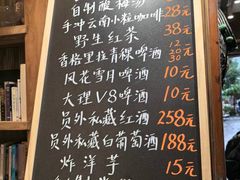 自制酸梅汤
手冲云南小粒咖啡 28元
野生红茶 38元
香格里拉青稞啤酒 12 20 30元
风花雪月啤酒 10元
大理V8啤酒 10元
员外私藏红酒 258元
员外私藏白葡萄酒 188元
炸洋芋 15元